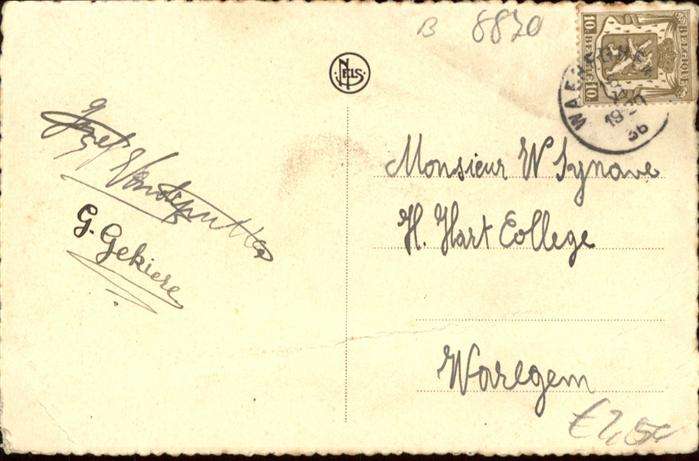 B 8870
NELS
BELGIQUE
BELGIE
10
10
19-20
36
Jozef Vandeputte
G. Gekiere
Monsieur W Synave
H. Hart College
Waregem
€2,50